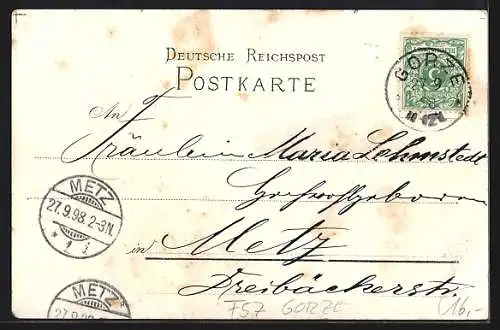 DEUTSCHE REICHSPOST
POSTKARTE
GORZE
5
An
Fräulein Maria Lehmstedt
Hochwohlgeboren
in Metz
Dreibäckerstr.
METZ
27.9.98.2-3N.
METZ
27.9.98.2-3N.
F57 GORZE
16,-